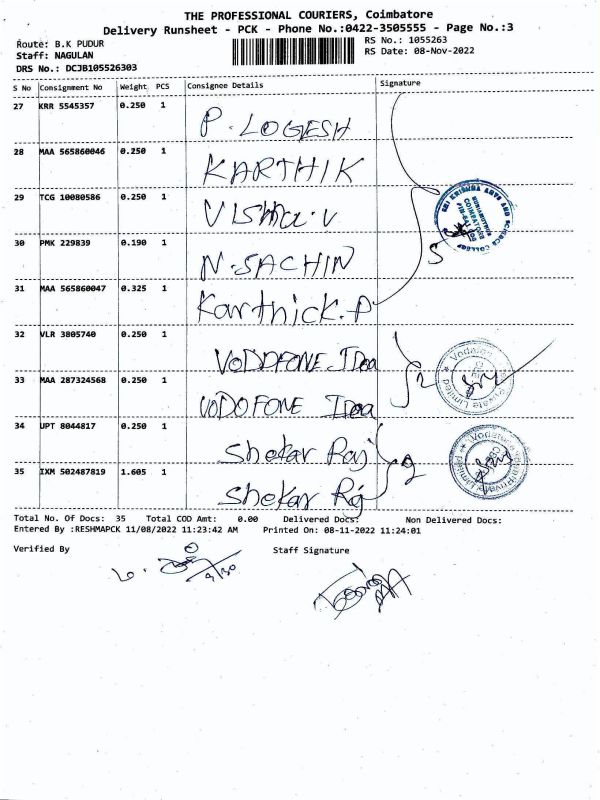 THE PROFESSIONAL COURIERS, Coimbatore
Delivery Runsheet - PCK - Phone No.:0422-3505555 - Page No.:3
Route: B.K PUDUR
RS No.: 1055263
Staff: NAGULAN
RS Date: 08-Nov-2022
DRS No.: DCJB105526303
S No Consignment No Weight PCS Consignee Details Signature
27 KRR 5545357 0.250 1 P. LOGESH
28 MAA 565860046 0.250 1 KARTHIK
29 TCG 10080586 0.250 1
30 PMK 229839 0.190 1 N. SACHIN
SRI KRISHNA ARTS AND SCIENCE COLLEGE
COIMBATORE
5
31 MAA 565860047 0.325 1 Karthick. P
32 VLR 3805740 0.250 1 VODDFONE Idea
33 MAA 287324568 0.250 1 VODOFONE Idea
2
34 UPT 8044817 0.250 1 Shekar Raj
35 IXM 502487819 1.605 1 Shekar Raj
2
Total No. Of Docs: 35 Total COD Amt: 0.00 Delivered Docs: Non Delivered Docs:
Entered By :RESHMAPCK 11/08/2022 11:23:42 AM Printed On: 08-11-2022 11:24:01
Verified By Staff Signature
9/30